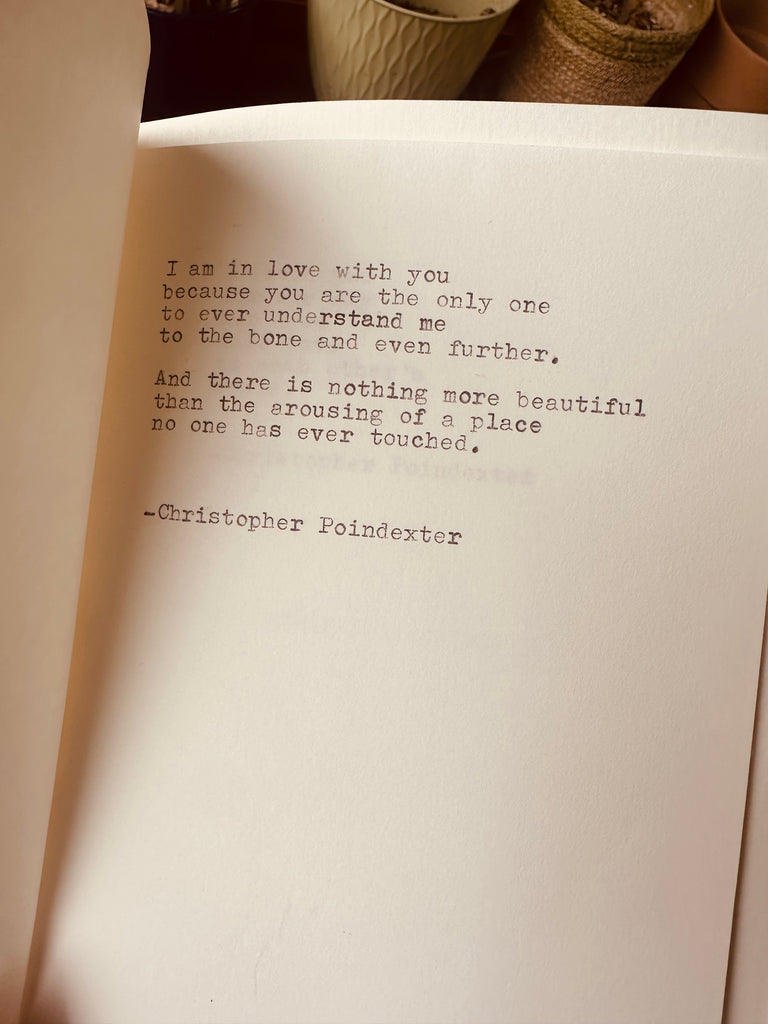 I am in love with you
because you are the only one
to ever understand me
to the bone and even further.
And there is nothing more beautiful
than the arousing of a place
no one has ever touched.
-Christopher Poindexter